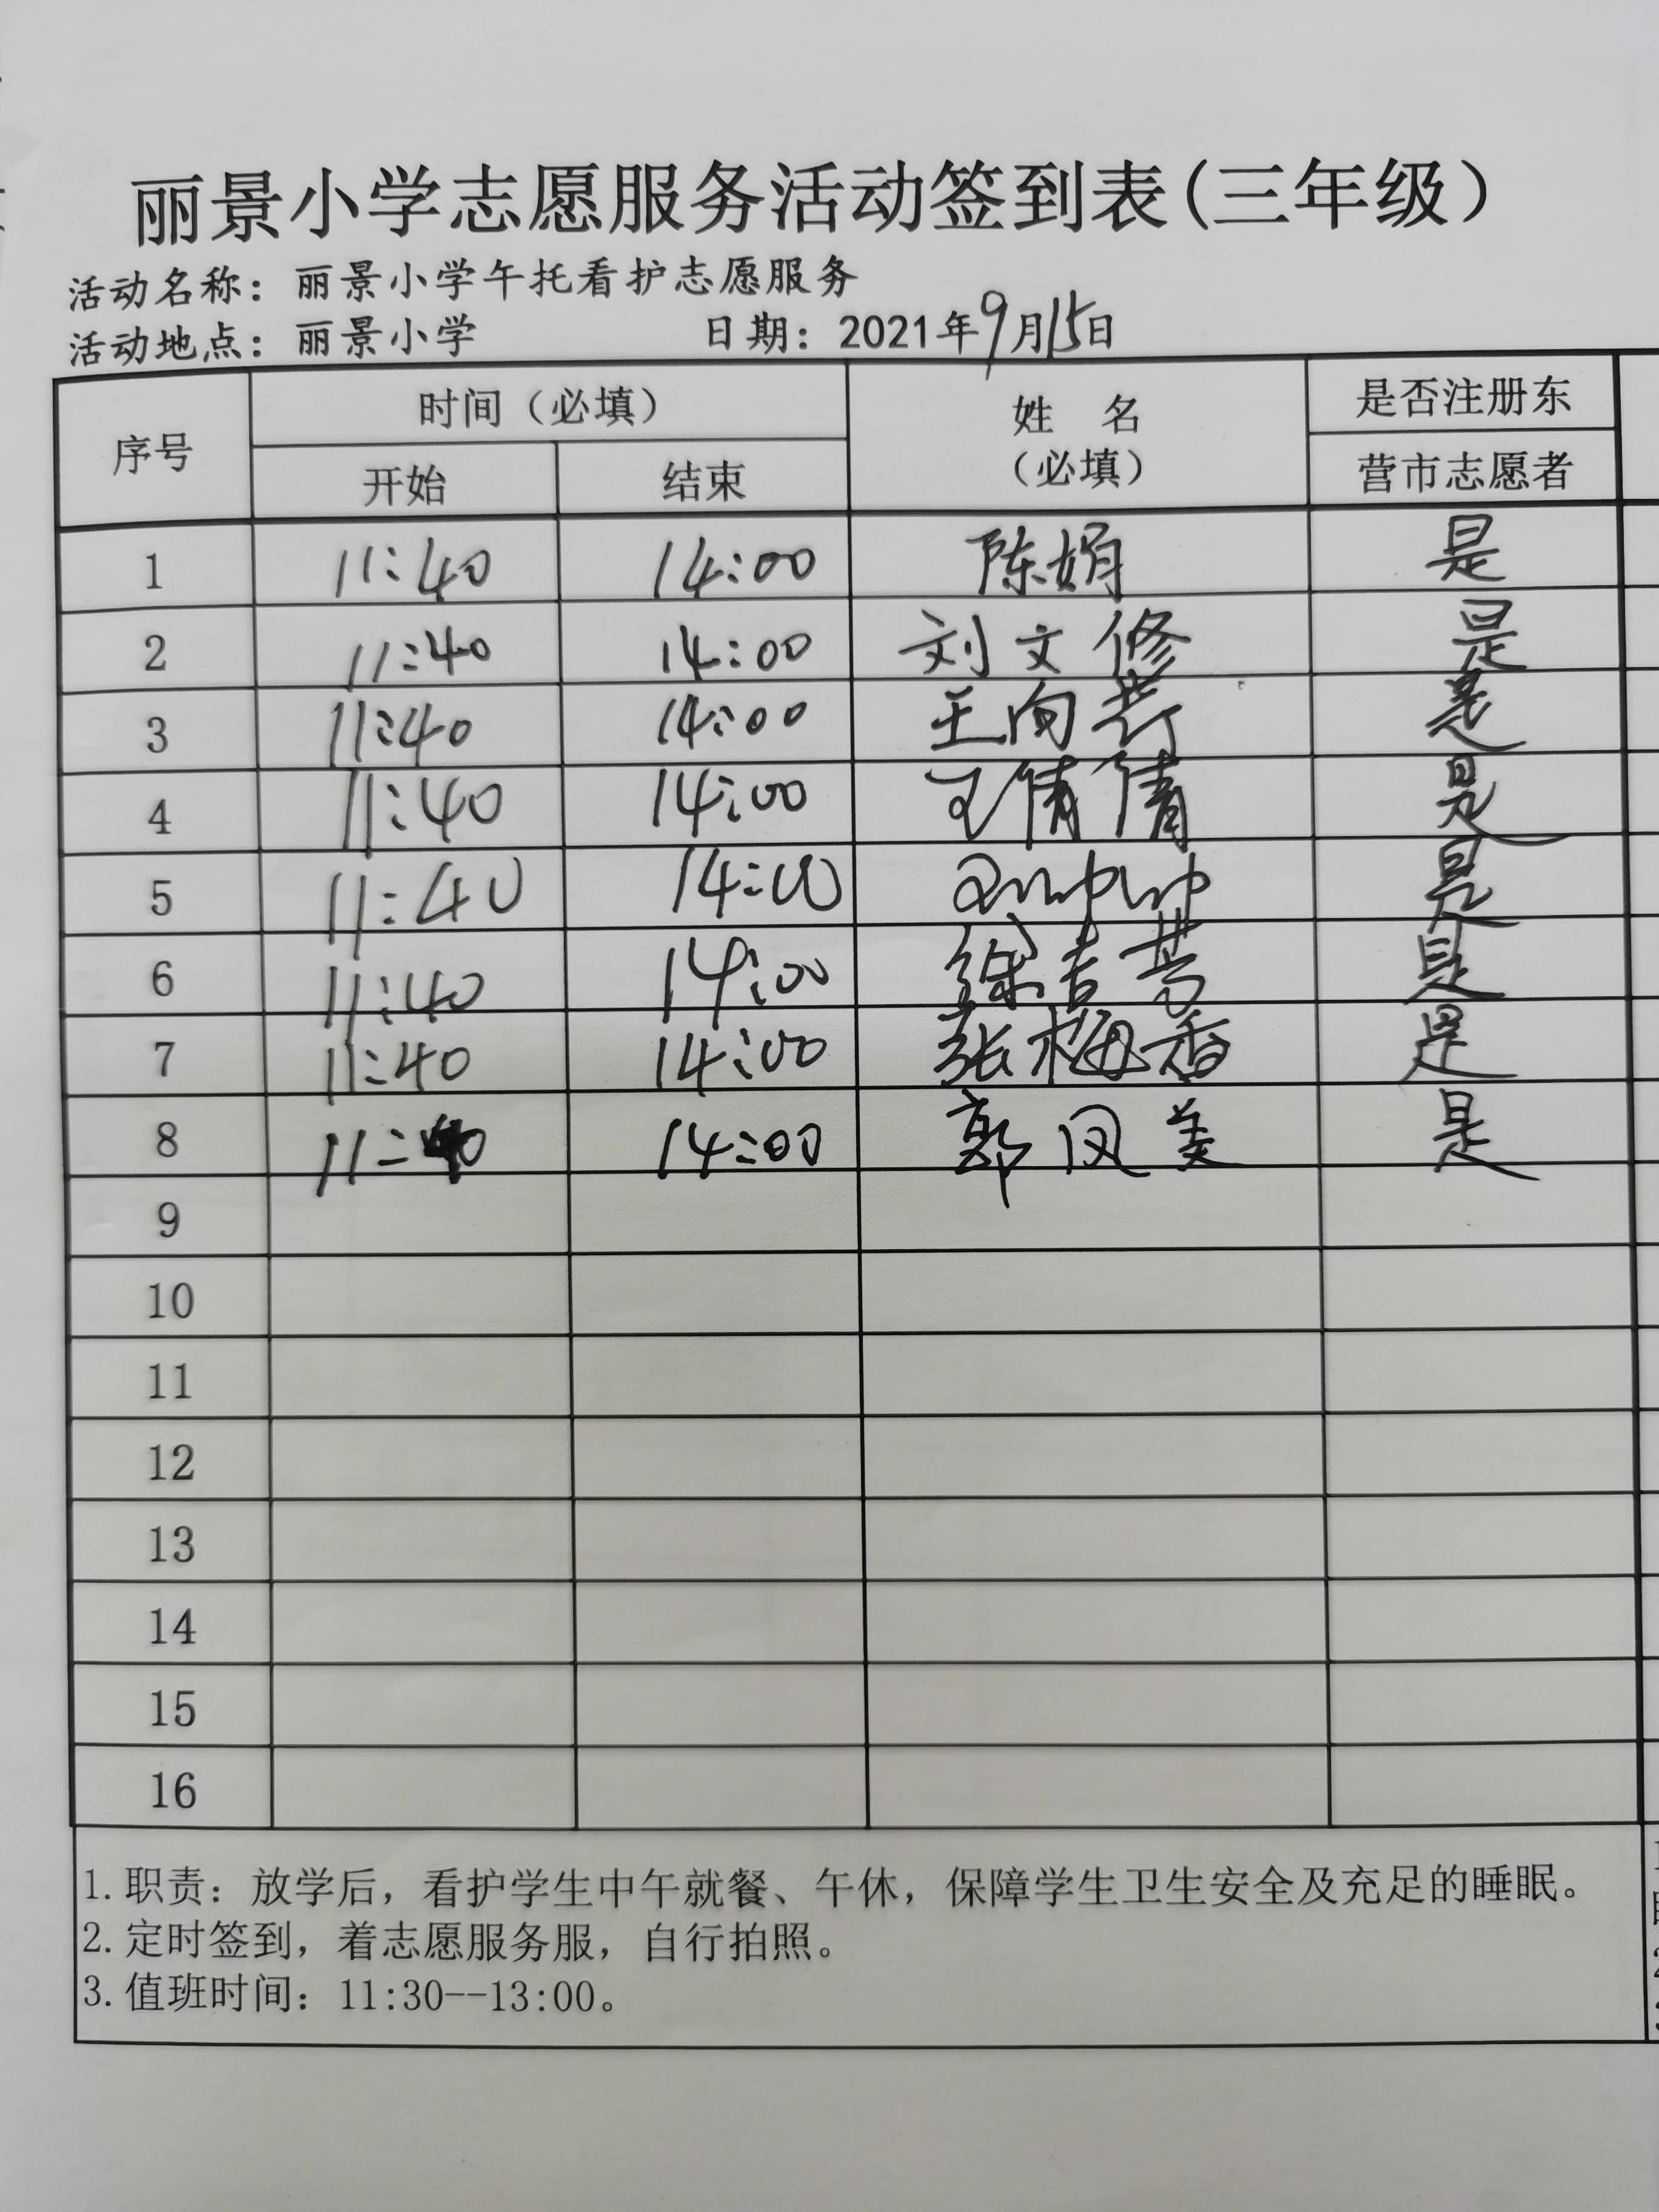 丽景小学志愿服务活动签到表(三年级)
活动名称：丽景小学午托看护志愿服务
活动地点：丽景小学 日期：2021年9月15日
序号 时间（必填） 姓名（必填） 是否注册东营市志愿者
开始 结束
1 11:40 14:00 陈娟 是
2 11:40 14:00 刘文修 是
3 11:40 14:00 王向 是
4 11:40 14:00 王倩倩 是
5 11:40 14:00 是
6 11:40 14:00 徐吉芳 是
7 11:40 14:00 张梅香 是
8 11:40 14:00 郭凤美 是
9
10
11
12
13
14
15
16
1.职责：放学后，看护学生中午就餐、午休，保障学生卫生安全及充足的睡眠。
2.定时签到，着志愿服务服，自行拍照。
3.值班时间：11:30--13:00。